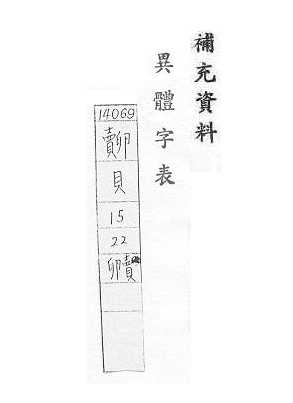 補充資料
異體字表
14069
貝
15
22
贕